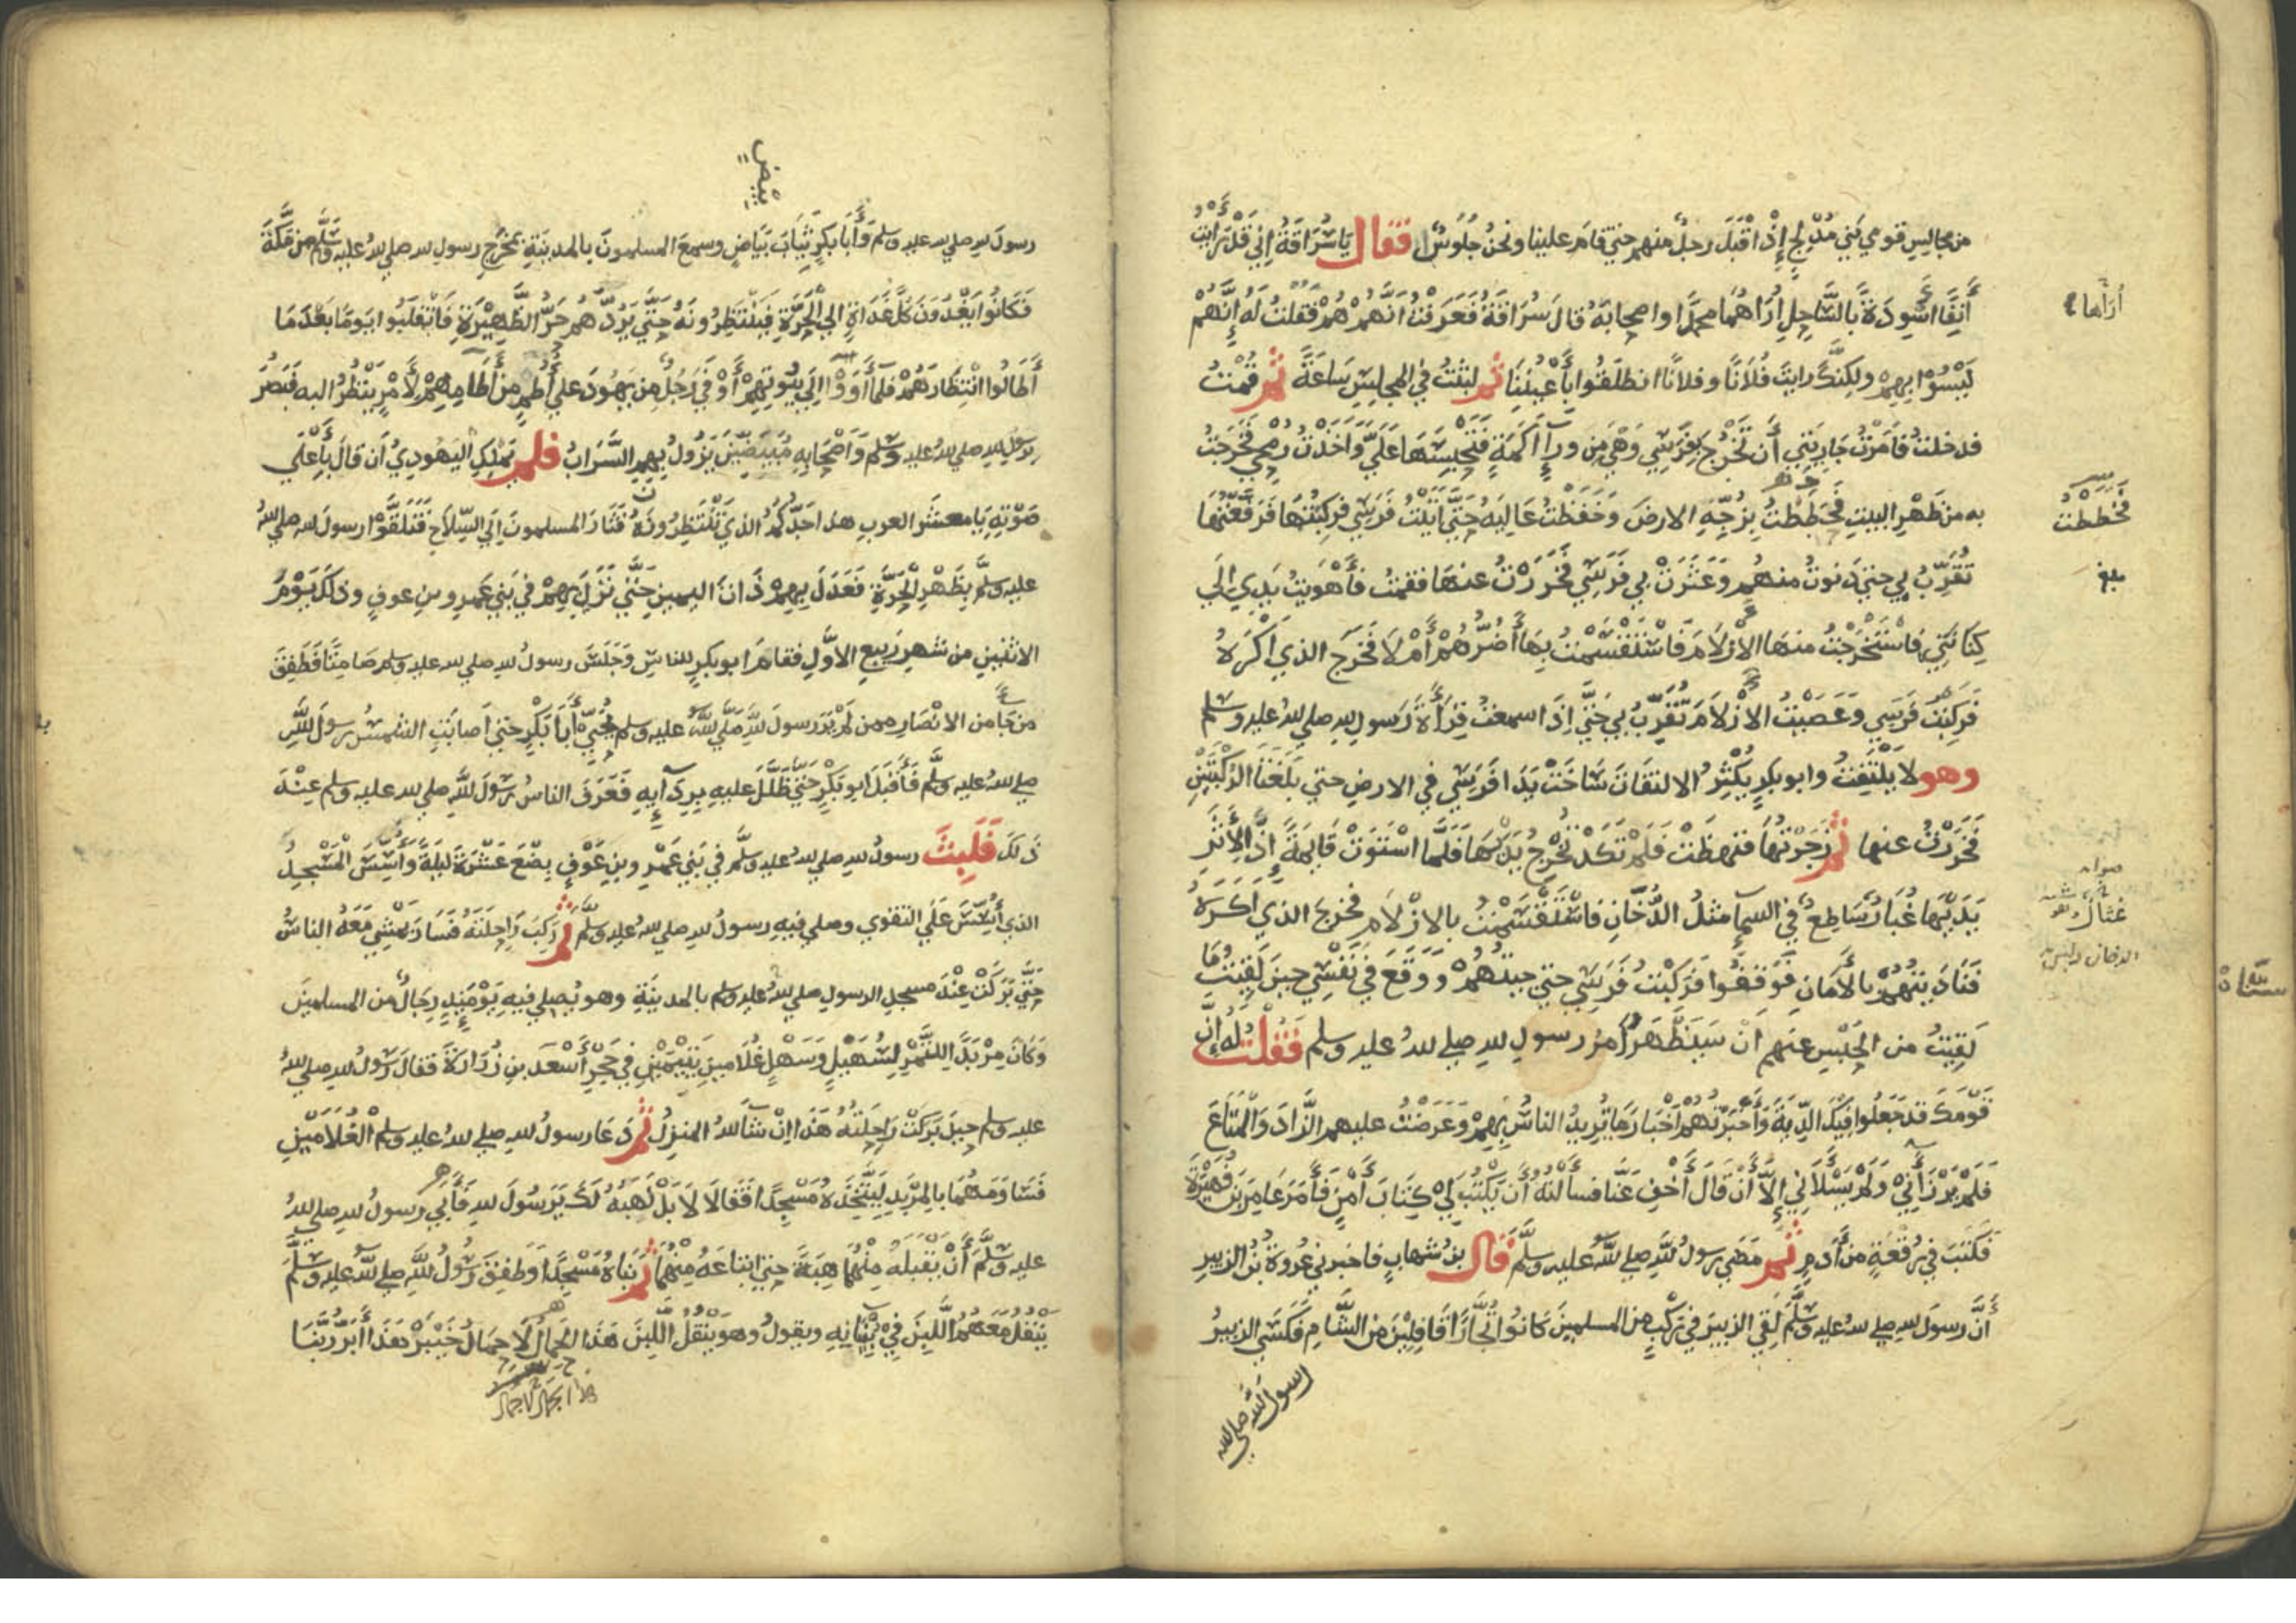 من مجالس قومي بني مُدْلِجٍ إِذْ اقْبَلَ رجلٌ منهم حتي قام علينا ونحنُ جُلُوسٌ فقال يَا سُرَاقَةُ إِنِّي قَدْ رَأَيْتُ
أَنِفًا اسْوِدَةً بالسَّاحِلِ اُرَاهُمَا محمدًا واصحابَهُ قالَ سُرَاقَةُ فَعَرَفْتُ انَّهُمْ هُمْ فَقُلْتُ لَهُ إِنَّهُمْ
أُرَاها
لَيْسُوْا بِهِمْ ولكِنَّكَ رايتَ فُلَانًا وفلانًا انطلَقُوا بِأَعْيُنِنَا ثم لبثْتُ في المجلِسِ سَاعَةً ثم قُمْتُ
فدخلتُ فامَرْتُ جَارِيَتِي أَن تَخْرُجَ بِفَرَسِي وَهْيَ مِن ورآءِ أَكَمَةٍ فَتَحْبِسَهَا عَلَيَّ وَاَخَذْتُ رُمْحِي فَخَرَجْتُ
به من ظَهْرِ البيتِ فَخَطَطْتُ بِزُجِّهِ الارضَ وَخَفَظْتُ عَالِيَهُ حَتَّى أَتَيْتُ فَرَسِي فركِبْتُهَا فَرَفَعْتُهَا
فَخَطَطْتُ
تُقَرِّبُ بِي حتي دَنوتُ منهُم وَعَثَرَتْ بِي فَرَسِي فَخَرَرْتُ عنهَا فقمتُ فَأَهْوَيتُ يَدِي الَي
بلغ
كِنَانَتِي فَاسْتَخْرَجْتُ منهَا الْأزْلَامَ فَاسْتَقْسَمْتُ بِهَا أَضُرُّهُمْ أَمْ لَا فَخَرَج الذي أَكْرَهُ
فَرَكِبْتُ فَرَسِي وَعَصَيْتُ الازْلَامَ تُقَرِّبُ بي حَتَّي اِذَا سمعتُ قِرَأةَ رَسولِ لله صلي لله عليه وسلم
وهو لَا يَلْتَفِتُ وابو بكرٍ يُكْثِرُ الالتفَاتَ سَاخَتْ يَدَا فَرَسِي في الارضِ حتي بَلَغَتَا الرُّكْبَتَيْنِ
فَخَرَرْتُ عنها ثم زَجَرْتُهَا فنهضَتْ فَلَمْ تَكَدْ تُخْرِجُ يَدَيْهَا فَلَمَّا اسْتَوَتْ قَايِمَةً إِذَا لِأَثَرِ
يَدَيْهَا غُبَارٌ سَاطِعٌ في السمآءِ مثلُ الدُّخَانِ فَاسْتَقْسَمْتُ بالازْلَامِ فخرجَ الذي أَكْرَهُ
صوابه
عُثَانٌ وهو
الدخان
فَنَادَيْتُهُمْ بالاَمَانِ فَوَقَفُوا فَرَكبْتُ فَرَسِي حتي جيتُهُمْ وَوَقَعَ في نَفْسِي حينَ لَقِيْتُ مَا
لَقِيتُ من الحَبْسِ عنهم اَنْ سَيَظْهَرُ اَمْرُ رسولِ لله صلي لله عليه وسلم فَقُلْتُ لَهُ إِنَّ
قَوْمَكَ قد جَعَلُوا فِيكَ الدِّيَةَ وَأَخْبَرْتُهُمْ أَخْبَارَ مَا يُرِيدُ الناسُ بِهِمْ وَعَرَضْتُ عليهم الزَّادَ وَالْمَتَاعَ
فَلَمْ يَرْزَأَنِيْ وَلَمْ يَسْلَأَنِي اِلَّا أَنْ قَالَ أَخْفِ عَنَّا فسألتُهُ أَن يَكْتُبَ لِيْ كِتَابَ أَمْنٍ فَأَمَرَ عَامِرَ بنَ فُهَيْرَةَ
فَكَتَبَ في رُقْعَةٍ من أَدَمٍ ثم مَضَي رسولُ للهِ صلي للهُ عليه وسلَّم قال بنُ شهابٍ فاخبرني عُروةُ بْنُ الزبيرِ
أَنَّ رسولَ لله صلي لله عليه وسلَّم لَقِيَ الزبيرَ في رَكْبٍ من المسلمينَ كانُوا تُجَّارًا قَافِلِيْنَ من الشَّامِ فَكَسَي الزبيرُ
رسول الله صلي لله
رسولَ لله صلي لله عليه وسلم وَأَبَا بَكْرٍ ثِيَابَ بَيَاضٍ وسمعَ المسلمونَ بالمدينَةِ بمخْرَجِ رسولِ لله صلي لله عليه وسلَّم من مَكَّةَ
فَكانُوا يَغْدُونَ كُلَّ غَدَاةٍ الي الْحَرَّةِ فَيَنْتَظِرُونَهُ حَتَّي يَرُدَّهُم حَرُّ الظَّهِيْرَةِ فَانْقَلَبُوا يومًا بَعْدَمَا
أَطَالُوا انْتِظَارَهُمْ فلَمَّا أَوَوْا إلي بُيُوتِهِمْ أَوْفَي رَجُلٌ من يَهُودَ علي أُطُمٍ من أَطَامِهِمْ لِأَمْرٍ يَنْظُرُ اليه فَبَصُرَ
برسول لله صلي لله عليه وسلم وَأَصْحَابِهِ مُبَيَّضِيْنَ يَزُولُ بِهِم السَّرَابُ فلم يَمْلِكِ الْيَهُودِيُّ أَن قالَ بِأَعْلَي
صَوْتِهِ يَا معشَرَ العربِ هذا جَدُّكُمُ الذي تَنْتَظِرُونَهُ فَثَارَ المسلمونَ اِلَي السِّلَاحِ فَتَلَقَّوْا رسولَ لله صلي لله
عليه وسلَّم بِظَهْرِ الْحَرَّةِ فَعَدَلَ بِهِمْ ذَاتَ اليمين حَتَّي نَزَلَ بِهِمْ في بَنِي عَمِرو بنِ عوفٍ وذلكَ يَوْمَ
الاثنينِ من شهرِ ربيعِ الاوَّلِ فقامَ ابو بكرٍ للناسِ وَجَلَسَ رسولُ لله صلي لله عليه وسلم صَامِتًا فَطَفِقَ
من جَا من الانْصَارِ ممن لَمْ يَرَ رسولَ للهِ صَلَّي للهُ عليه وسلم يُحَيِّي أَبَا بَكْرٍ حتي اَصابَتِ الشمسُ رسولَ للَّهِ
صلي للهُ عليه وسلَّم فَأَقْبَلَ ابو بَكْرٍ حَتَّي ظَلَّلَ عليهِ بِرِدَآئِهِ فَعَرَفَ الناسُ رَسُولَ للَّهِ صلي لله عليه وسلم عِنْدَ
ذَلكَ فَلَبِثَ رسولُ لله صلي لله عليه وسلَّم في بَنِي عَمْرِو بنِ عَوْفٍ بِضْعَ عَشْرَةَ لَيلَةً وَأُسِّسَ الْمَسْجِدُ
الذي أُسِّسَ عَلَي التقوي وصلي فيهِ رسولُ لله صلي لله عليه وسلَّم ثم رَكِبَ رَاحِلَتَهُ فَسَارَ يَمْشِي مَعَهُ الناسُ
حَتَّي بَرَكَتْ عِنْدَ مسجدِ الرسولِ صلي لله عليه وسلم بالمدينَةِ وهو يُصلي فيهِ يَوْمَئِذٍ رِجَالٌ من المسلمينَ
وَكانَ مِرْبَدًا للتَّمْرِ لِسُهَيْلٍ وَسَهْلٍ غُلَامينِ يَتِيْمَيْنِ في حَجْرِ أَسْعَد بنِ زُرَارَةَ فقالَ رَسُولُ لله صلي لله
عليه وسلم حينَ بَرَكَتْ رَاحِلَتُهُ هَذَا اِنْ شآ للهُ المنزِلُ ثم دَعَا رسولُ لله صلي لله عليه وسلم الْغُلَامَيْنِ
فَسَاوَمَهُمَا بالمِرْبَدِ لِيَتَّخِذَهُ مَسْجِدًا فقَالَا لَا بَلْ نَهَبُهُ لَكَ يَرَسُولَ للهِ فَأَبَي رسولُ لله صلي لله
عليه وسلَّم أَنْ يَقْبَلَهُ مِنْهُمَا هِبَةً حتي ابتاعَهُ مِنْهُمَا ثم بَنَاهُ مَسْجِدًا وَطفِقَ رَسُولُ للَّهِ صلي للهُ عليه وسلَّمَ
يَنْقُلُ مَعَهُمُ اللَّبِنَ فِيْ بُنْيَانِهِ ويقولُ وهو يَنْقُلُ اللَّبِنَ هَذَا الحِمَالُ لَا حِمَالُ خَيْبَرْ هَذَا أَبَرُّ رَبَّنَا
هذا الجمال لا جمال